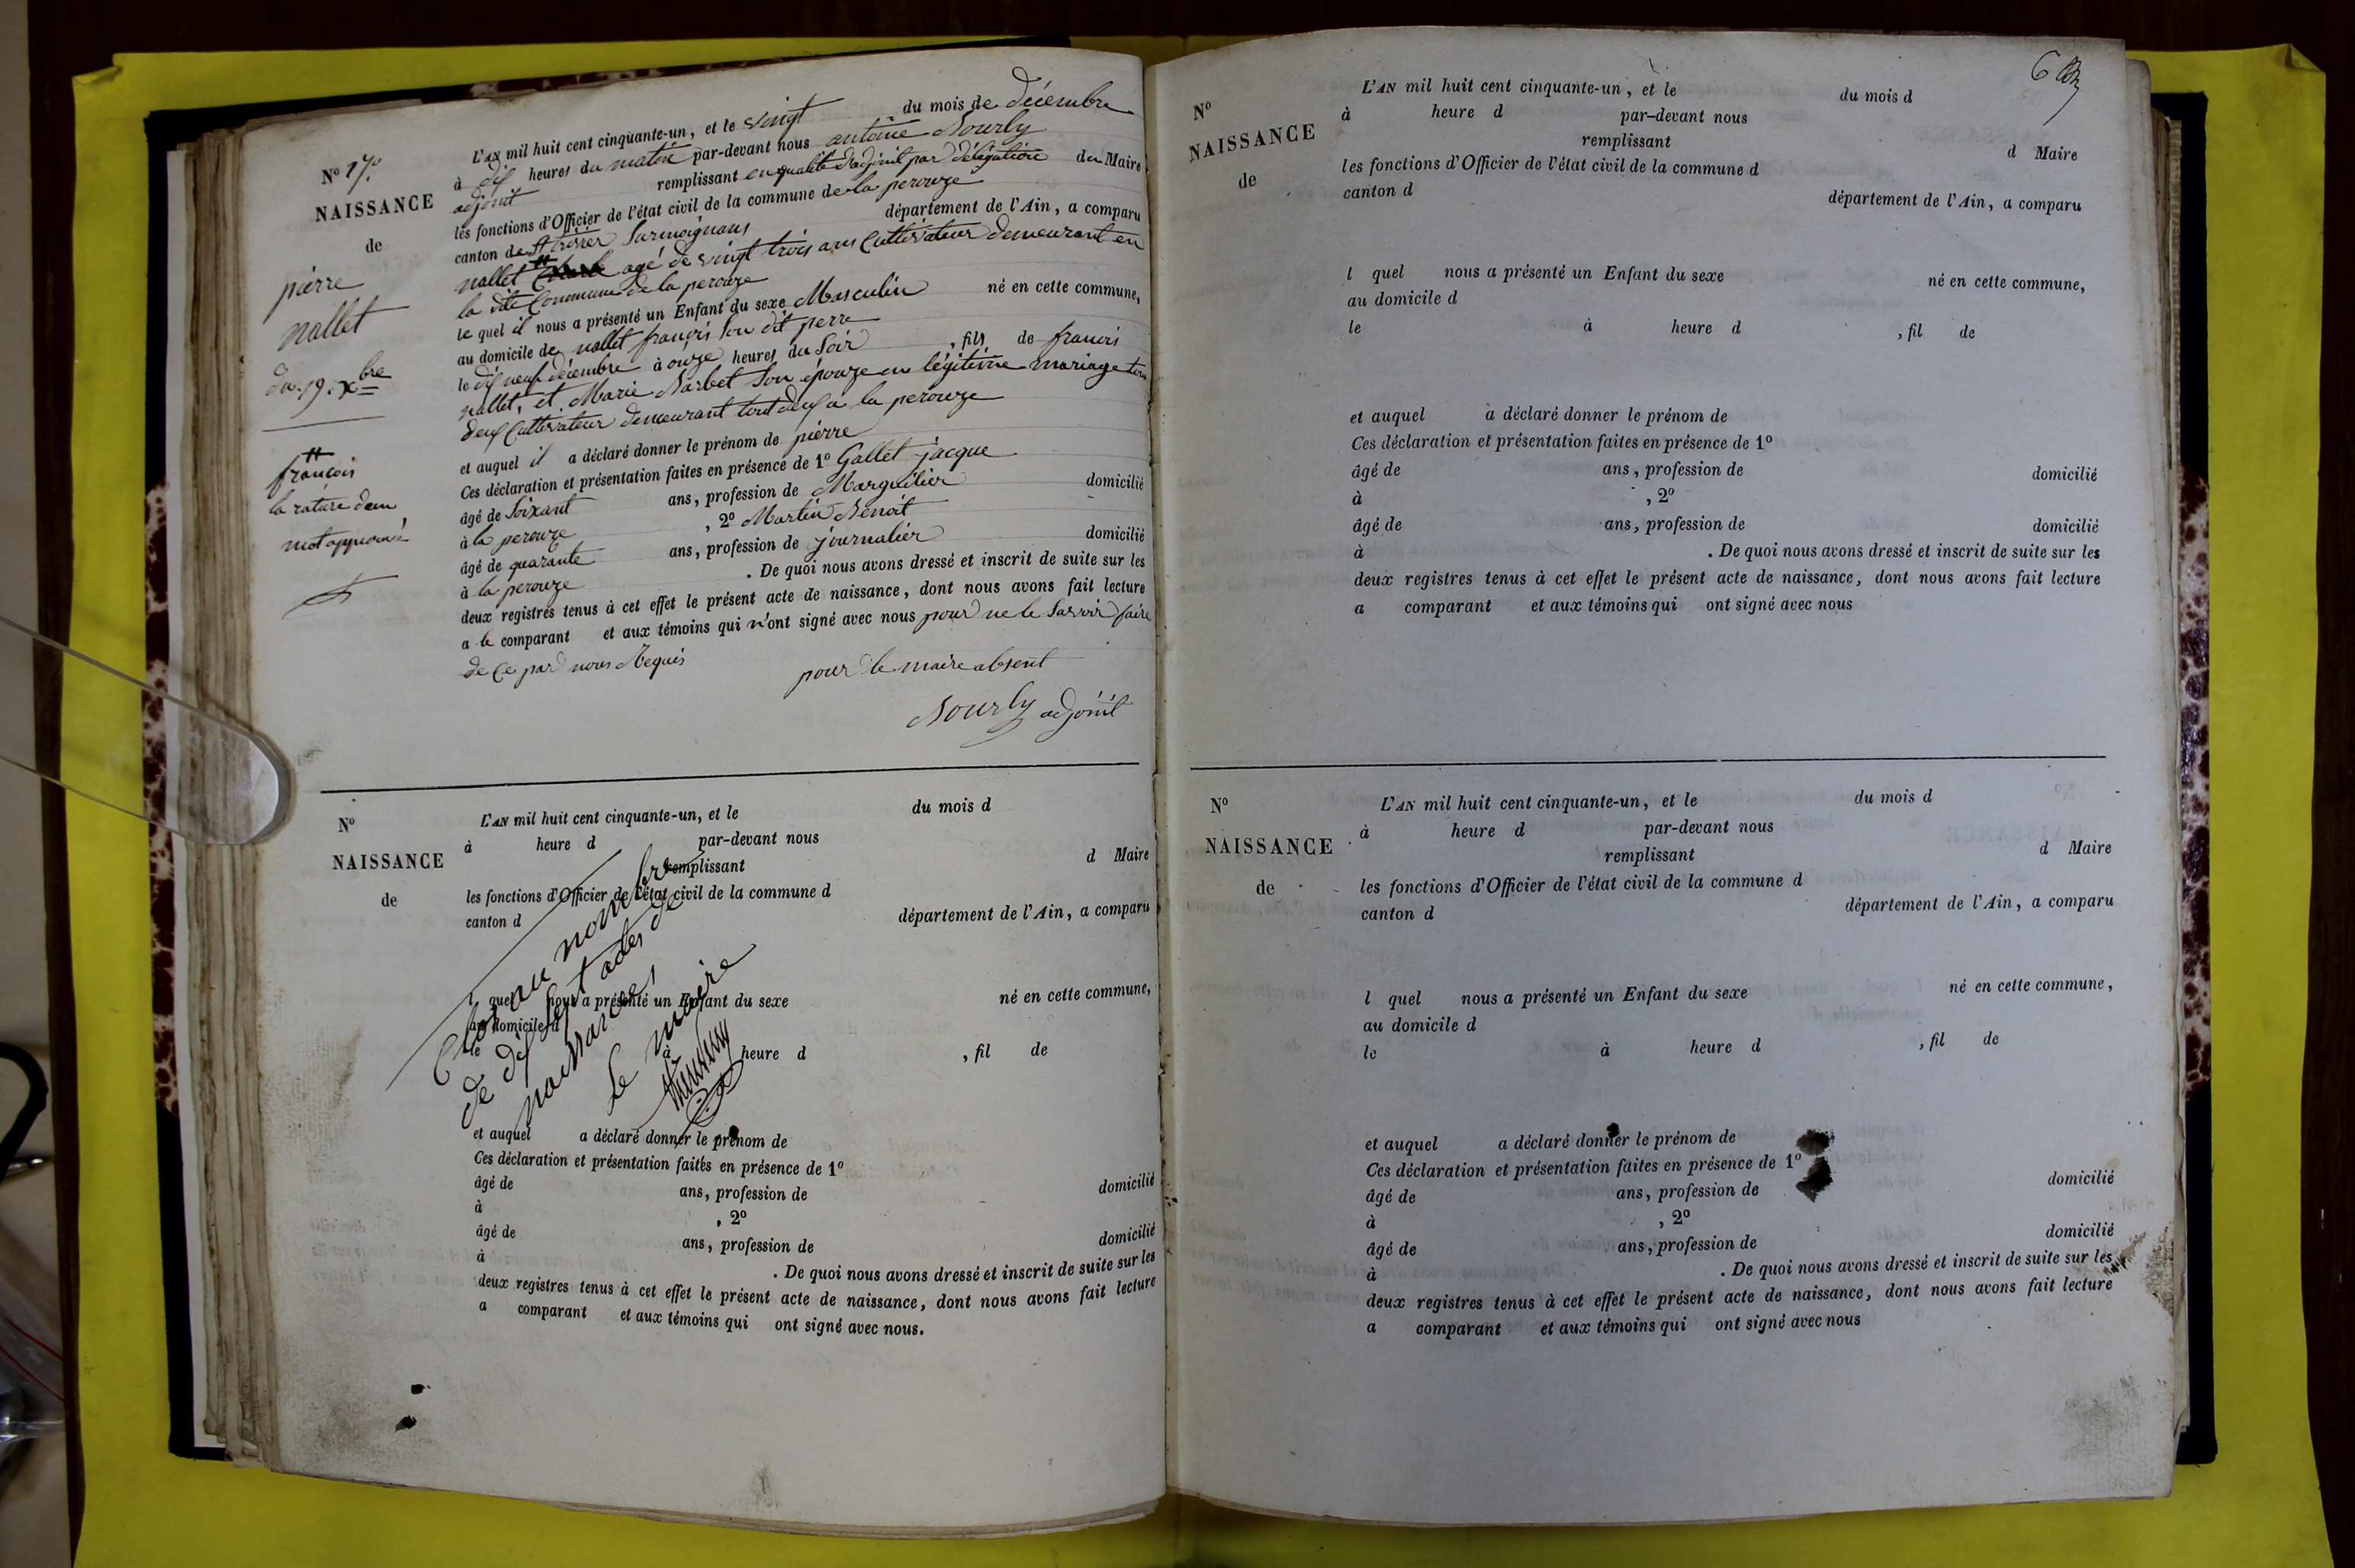 N° 17.
NAISSANCE
de
pierre
nallet
du 19. Xbre
françois
la rature d'un
mot approuvé
L'AN mil huit cent cinquante-un, et le vingt du mois de décembre
à dix heures du matin par-devant nous antoine Nourly
adjoint remplissant en qualité d'adjoint par délégation du Maire
les fonctions d'Officier de l'état civil de la commune de la perouze
canton de département de l'Ain, a comparu
nallet agé de vingt trois ans Cultivateur demeurant en
la dite Commune de la perouze
le quel il nous a présenté un Enfant du sexe Masculin né en cette commune,
au domicile de nallet françois Son dit perre
le dix neuf décembre à onze heures du Soir, fils de françois
nallet, et Marie Barbet Son épouze en légitime mariage tous
deux Cultivateur demeurant tout deux a la perouze
et auquel il a déclaré donner le prénom de pierre
Ces déclaration et présentation faites en présence de 1° Gallet jacque
âgé de Soixant ans, profession de Marguilier domicilié
à la perouze, 2° Martin Benoit
âgé de quarante ans, profession de journalier domicilié
à la perouze. De quoi nous avons dressé et inscrit de suite sur les
deux registres tenus à cet effet le présent acte de naissance, dont nous avons fait lecture
a le comparant et aux témoins qui n'ont signé avec nous pour ne le Savoir faire
de Ce par nous Requis
pour le maire absent
Nourly adjoint
N°
NAISSANCE
de
L'AN mil huit cent cinquante-un, et le du mois d
à heure d par-devant nous
remplissant d Maire
les fonctions d'Officier de l'état civil de la commune d
canton d département de l'Ain, a comparu
l quel nous a présenté un Enfant du sexe né en cette commune,
au domicile d
le à heure d , fil de
Clos au nombre
de dix sept actes de
naissances
Le maire
et auquel a déclaré donner le prénom de
Ces déclaration et présentation faites en présence de 1°
âgé de ans, profession de domicilié
à , 2°
âgé de ans, profession de domicilié
à . De quoi nous avons dressé et inscrit de suite sur les
deux registres tenus à cet effet le présent acte de naissance, dont nous avons fait lecture
a comparant et aux témoins qui ont signé avec nous.
6
N°
NAISSANCE
de
L'AN mil huit cent cinquante-un, et le du mois d
à heure d par-devant nous
remplissant d Maire
les fonctions d'Officier de l'état civil de la commune d
canton d département de l'Ain, a comparu
l quel nous a présenté un Enfant du sexe né en cette commune,
au domicile d
le à heure d , fil de
et auquel a déclaré donner le prénom de
Ces déclaration et présentation faites en présence de 1°
âgé de ans, profession de domicilié
à , 2°
âgé de ans, profession de domicilié
à . De quoi nous avons dressé et inscrit de suite sur les
deux registres tenus à cet effet le présent acte de naissance, dont nous avons fait lecture
a comparant et aux témoins qui ont signé avec nous
N°
NAISSANCE
de
L'AN mil huit cent cinquante-un, et le du mois d
à heure d par-devant nous
remplissant d Maire
les fonctions d'Officier de l'état civil de la commune d
canton d département de l'Ain, a comparu
l quel nous a présenté un Enfant du sexe né en cette commune,
au domicile d
le à heure d , fil de
et auquel a déclaré donner le prénom de
Ces déclaration et présentation faites en présence de 1°
âgé de ans, profession de domicilié
à , 2°
âgé de ans, profession de domicilié
à . De quoi nous avons dressé et inscrit de suite sur les
deux registres tenus à cet effet le présent acte de naissance, dont nous avons fait lecture
a comparant et aux témoins qui ont signé avec nous